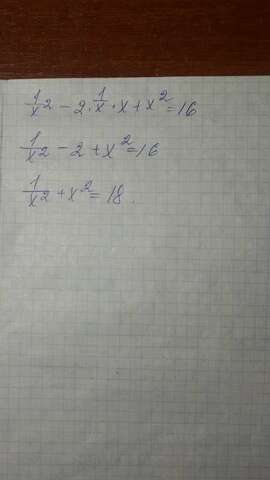 1/x² - 2·1/x·x + x² = 16
1/x² - 2 + x² = 16
1/x² + x² = 18.